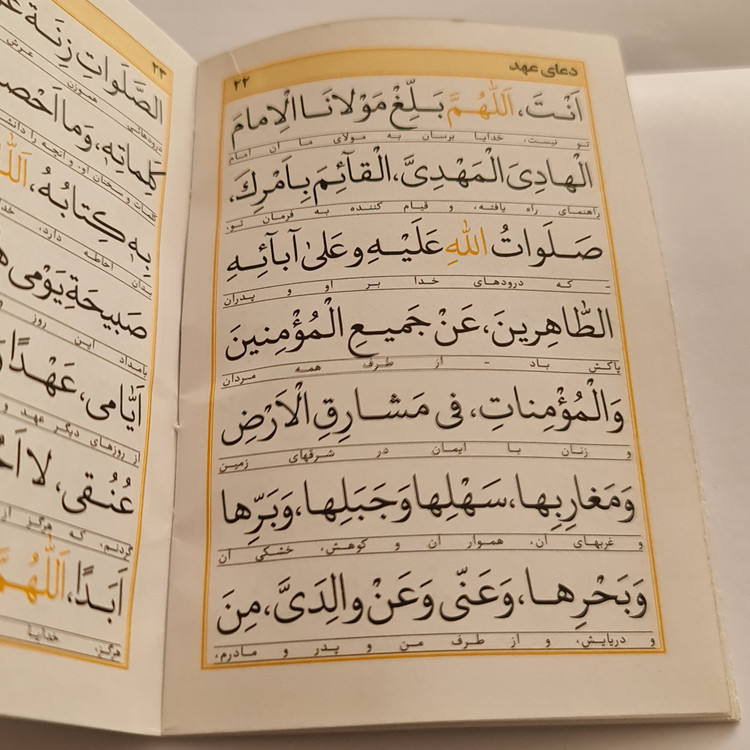 دعای عهد
۲۲
اَنْتَ، اَللّٰهُمَّ بَلِّغْ مَوْلانَا الْاِمامَ
تو نیست، خدایا برسان به مولای ما آن امام
الْهادِیَ الْمَهْدِیَّ، الْقآئِمَ بِاَمْرِكَ،
راهنمای راه یافته، و قیام کننده به فرمان تو،
صَلَواتُ اللهِ عَلَیْهِ وَعَلیٰ آبآئِهِ
- که درودهای خدا بر او و پدران
الطّاهِرینَ، عَنْ جَمیعِ الْمُؤْمِنینَ
پاکش باد - از طرف همه مردان
وَالْمُؤْمِناتِ، فی مَشارِقِ الْاَرْضِ
و زنان با ایمان در شرقهای زمین
وَمَغارِبِها، سَهْلِها وَجَبَلِها، وَبَرِّها
و غربهای آن، هموار آن و کوهش، خشکی آن
وَبَحْرِها، وَعَنّی وَعَنْ والِدَیَّ، مِنَ
و دریایش، و از طرف من و پدر و مادرم،
۲۳
الصَّلَواتِ زِنَةَ
درودهائی هموزن عرش
كَلِماتِهِ، وَما اَحْصا
کلمات و سخنان او، و آنچه را دانش
بِهِ كِتابُهُ، اَللّٰ
بدان احاطه دارد. خد
صَبیحَةِ یَوْمی
بامداد این روز
اَیّامی، عَهْدًا
از روزهای دیگر عهد و
عُنُقی، لا اَحُ
گردنم، که هرگز از
اَبَدًا، اَللّٰهُمَّ
هرگز. خدایا